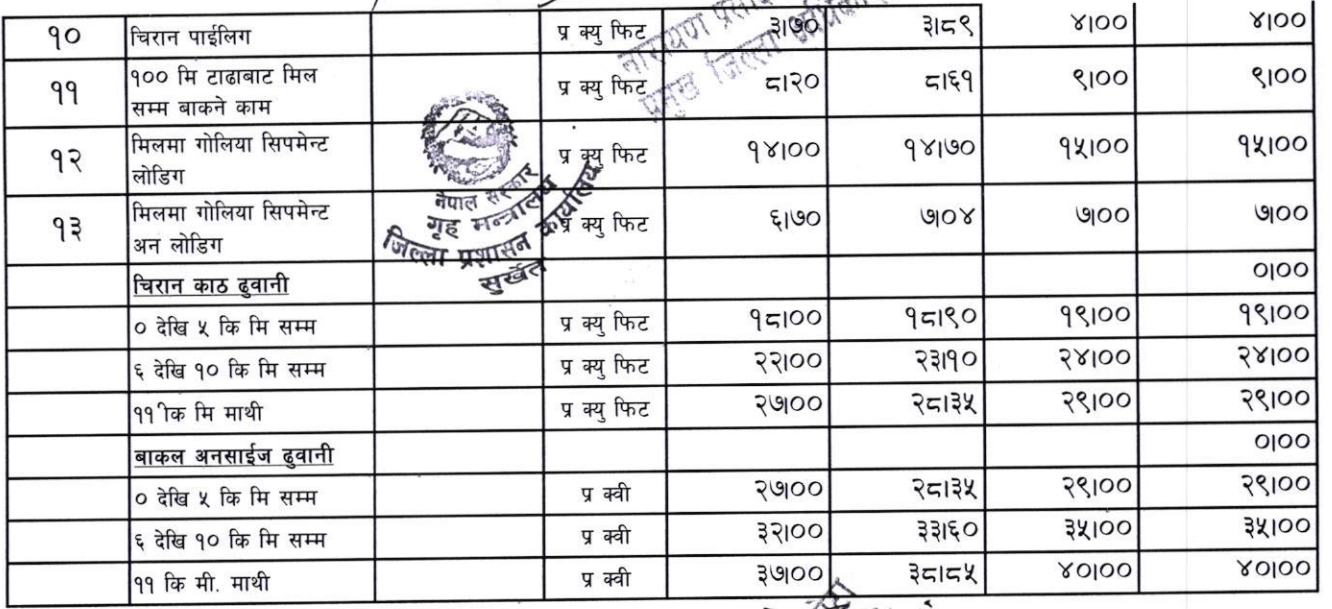 १० चिरान पाईलिग प्र क्यु फिट ३।७० ३।८९ ४।०० ४।००
११ १०० मि टाढाबाट मिल सम्म बाकने काम प्र क्यु फिट ८।२० ८।६१ ९।०० ९।००
१२ मिलमा गोलिया सिपमेन्ट लोडिग प्र क्यु फिट १४।०० १४।७० १५।०० १५।००
१३ मिलमा गोलिया सिपमेन्ट अन लोडिग प्र क्यु फिट ६।७० ७।०४ ७।०० ७।००
चिरान काठ ढुवानी ०।००
० देखि ५ कि मि सम्म प्र क्यु फिट १८।०० १८।९० १९।०० १९।००
६ देखि १० कि मि सम्म प्र क्यु फिट २२।०० २३।१० २४।०० २४।००
११ िक मि माथी प्र क्यु फिट २७।०० २८।३५ २९।०० २९।००
बाकल अनसाईज ढुवानी ०।००
० देखि ५ कि मि सम्म प्र क्वी २७।०० २८।३५ २९।०० २९।००
६ देखि १० कि मि सम्म प्र क्वी ३२।०० ३३।६० ३५।०० ३५।००
११ कि मी. माथी प्र क्वी ३७।०० ३८।८५ ४०।०० ४०।००
नारायण प्रसाद
प्रमुख जिल्ला अधिकारी
नेपाल सरकार
गृह मन्त्रालय
जिल्ला प्रशासन कार्यालय
सुर्खेत